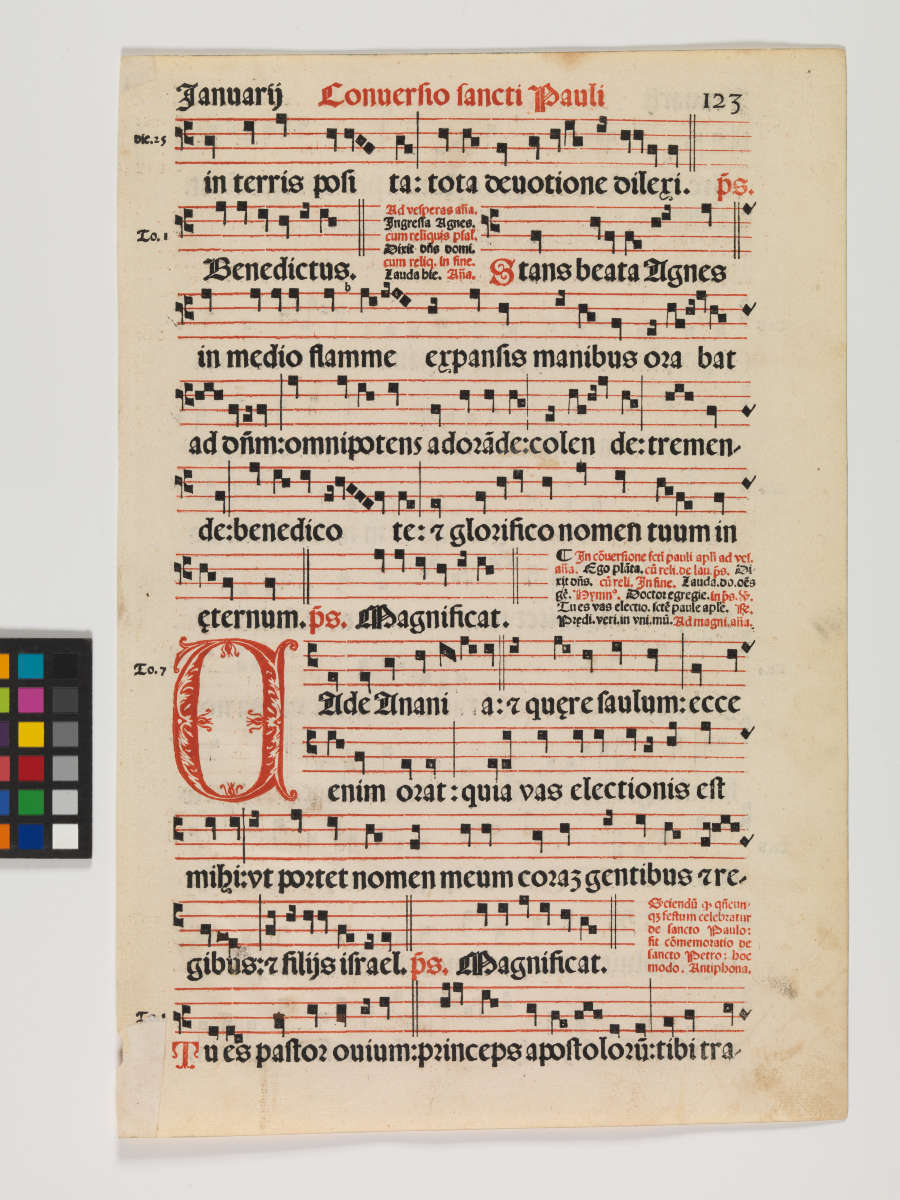 Januarij Conuersio sancti Pauli 123
Die.25
in terris posi ta: tota deuotione dilexi. p̄s.
To.1
Benedictus.
Ad vesperas aña.
Ingressa Agnes.
cum reliquis psal.
Dixit dñs domi.
cum reliq. in fine.
Lauda hie. Aña.
Stans beata Agnes
in medio flamme expansis manibus ora bat
ad dñm:omnipotens adorãde:colen de:tremen-
de:benedico te: ⁊ glorifico nomen tuum in
ęternum. p̄s. Magnificat.
¶ In cõuersione scti pauli apli ad ves.
aña. Ego plãta. cũ reli. de lau. p̄s. Di-
xit dñs. cũ reli. In fine. Lauda.do.oẽs
gẽ. Hymnꝰ. Doctor egregie. in p̄s. ℣.
Tu es vas electio. sctẽ paule apłe. ℟.
Prędi. veri. in vni. mũ. Ad magni. aña.
To.7
VAde Anani a: ⁊ quęre saulum: ecce
enim orat: quia vas electionis est
mihi:vt portet nomen meum coraꝫ gentibus ⁊ re-
gibus:⁊ filijs israel. p̄s. Magnificat.
Sciendũ ꝙ qñcun-
qꝫ festum celebratur
de sancto Paulo:
fit cõmemoratio de
sancto Petro: hoc
modo. Antiphona.
Tu es pastor ouium:princeps apostolorũ:tibi tra-